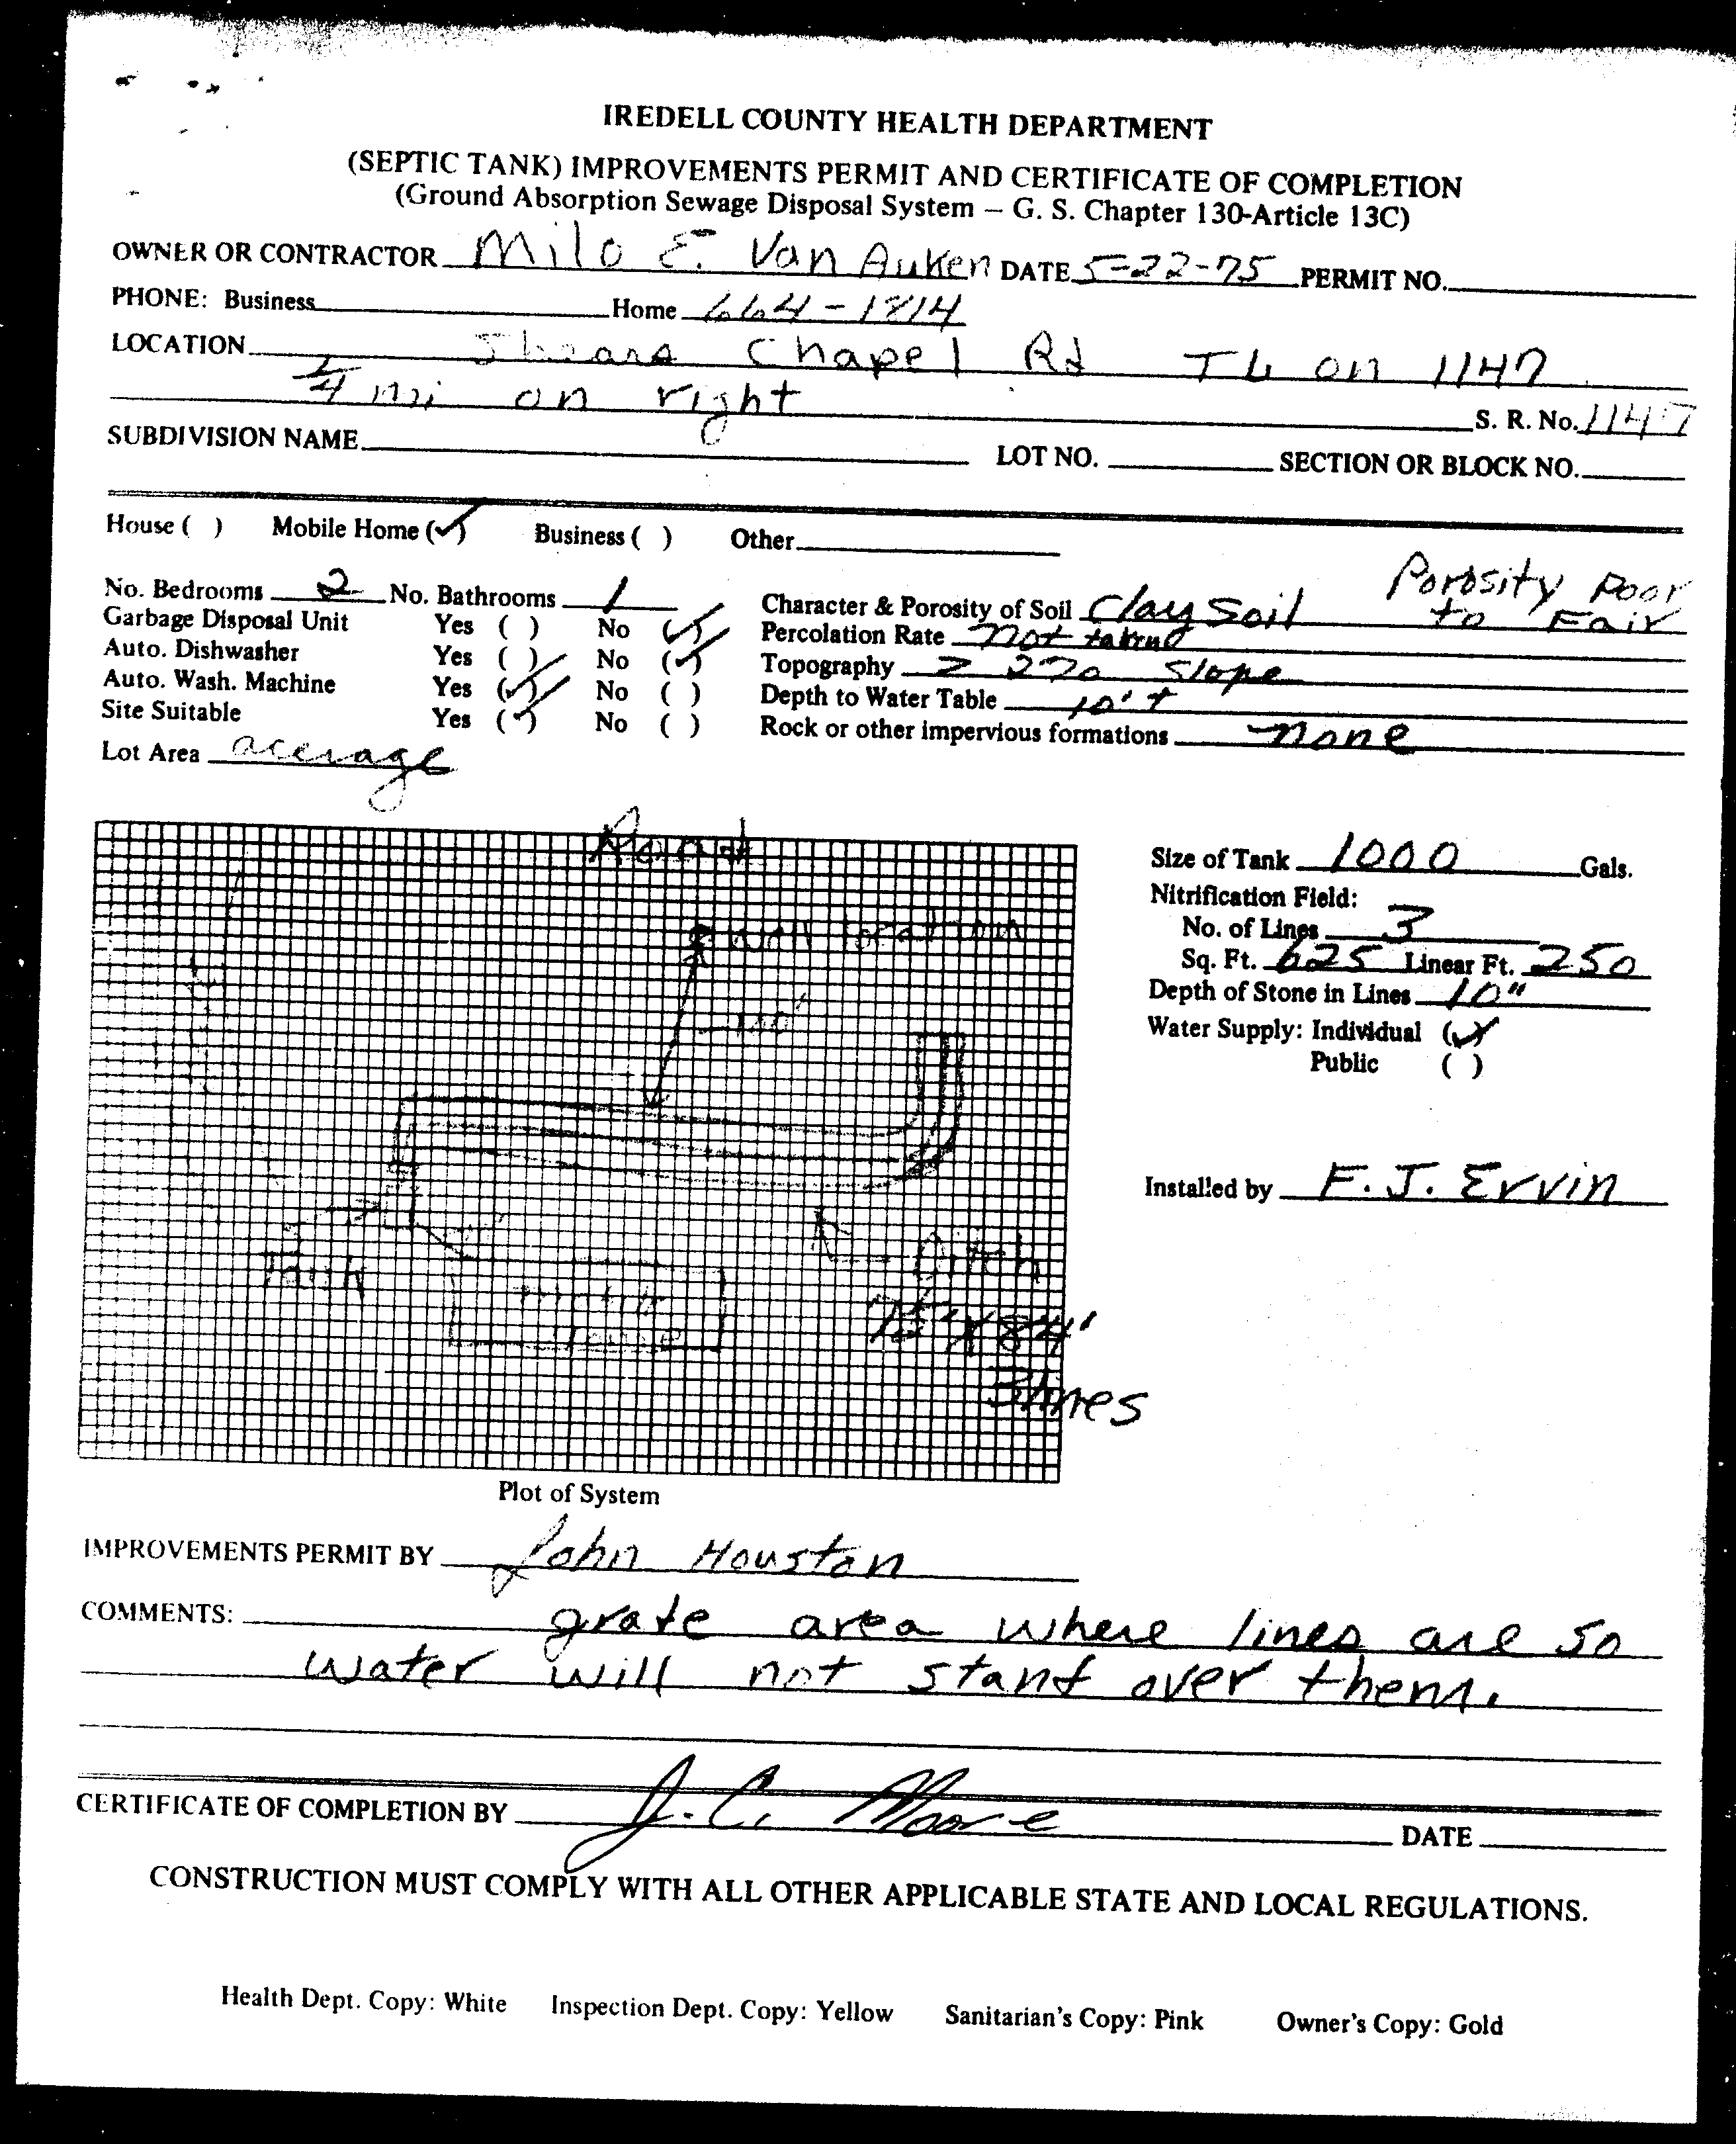 IREDELL COUNTY HEALTH DEPARTMENT
(SEPTIC TANK) IMPROVEMENTS PERMIT AND CERTIFICATE OF COMPLETION
(Ground Absorption Sewage Disposal System – G. S. Chapter 130-Article 13C)
OWNER OR CONTRACTOR Milo E. Van Auken DATE 5-22-75 PERMIT NO.
PHONE: Business Home 664-1814
LOCATION Shears Chapel Rd TL on 1147
1/4 mi on right S. R. No. 1147
SUBDIVISION NAME LOT NO. SECTION OR BLOCK NO.
House ( ) Mobile Home (✓) Business ( ) Other
No. Bedrooms 2 No. Bathrooms 1
Garbage Disposal Unit Yes ( ) No (✓)
Auto. Dishwasher Yes ( ) No (✓)
Auto. Wash. Machine Yes (✓) No ( )
Site Suitable Yes (✓) No ( )
Lot Area acerage
Porosity Poor
Character & Porosity of Soil Clay Soil to Fair
Percolation Rate not taken
Topography > 2% Slope
Depth to Water Table 10'+
Rock or other impervious formations none
Road
well location
100'
Tank
House
75' X 84'
3 lines
Plot of System
Size of Tank 1000 Gals.
Nitrification Field:
No. of Lines 3
Sq. Ft. 625 Linear Ft. 250
Depth of Stone in Lines 10"
Water Supply: Individual (✓)
Public ( )
Installed by F. J. Ervin
IMPROVEMENTS PERMIT BY John Houston
COMMENTS: grate area where lines are so
water will not stand over them.
CERTIFICATE OF COMPLETION BY J. C. Moore DATE
CONSTRUCTION MUST COMPLY WITH ALL OTHER APPLICABLE STATE AND LOCAL REGULATIONS.
Health Dept. Copy: White Inspection Dept. Copy: Yellow Sanitarian's Copy: Pink Owner's Copy: Gold